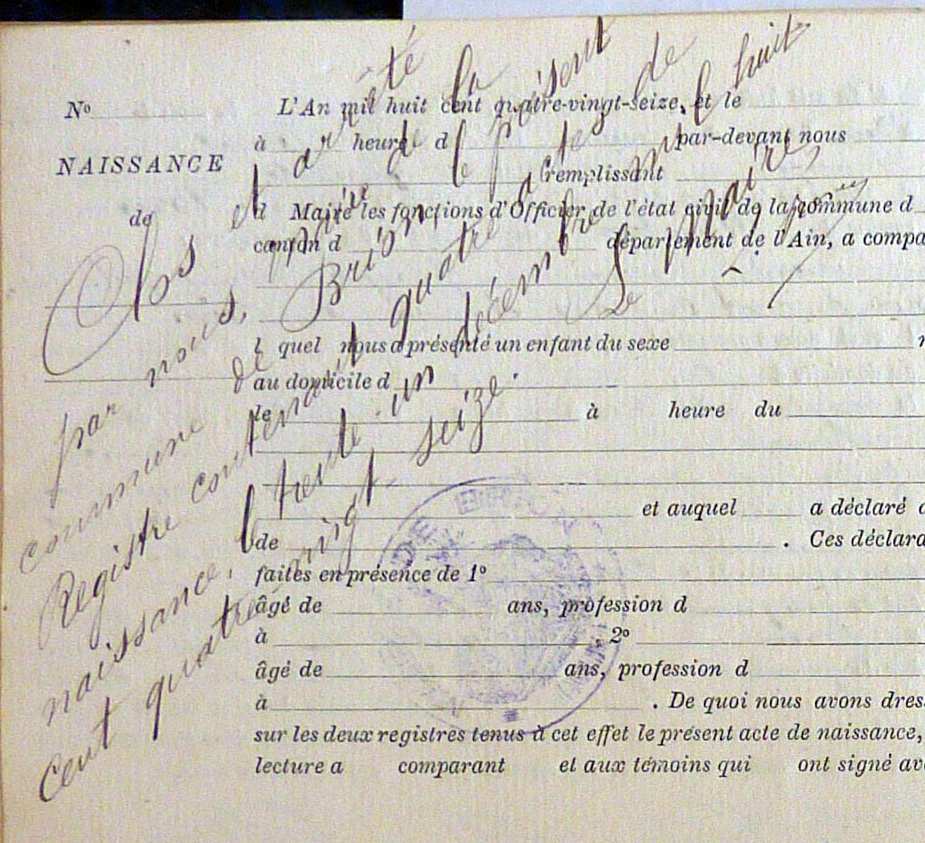 N° L'An mil huit cent quatre-vingt-seize, et le
à heure d par-devant nous
NAISSANCE remplissant
de d Maire les fonctions d'Officier de l'état civil de la commune d
canton d département de l'Ain, a compa
l quel nous a présenté un enfant du sexe
au domicile d
le à heure du
et auquel a déclaré
de . Ces déclara
faites en présence de 1°
âgé de ans, profession d
à , 2°
âgé de ans, profession d
à . De quoi nous avons dres
sur les deux registres tenus à cet effet le présent acte de naissance,
lecture a comparant et aux témoins qui ont signé av
Clos et arrêté
par nous, maire de la
commune de Brion, le présent
Registre contenant quatre actes de
naissance, le trente un décembre mil huit
cent quatre-vingt-seize.
Le Maire,
DE BRION